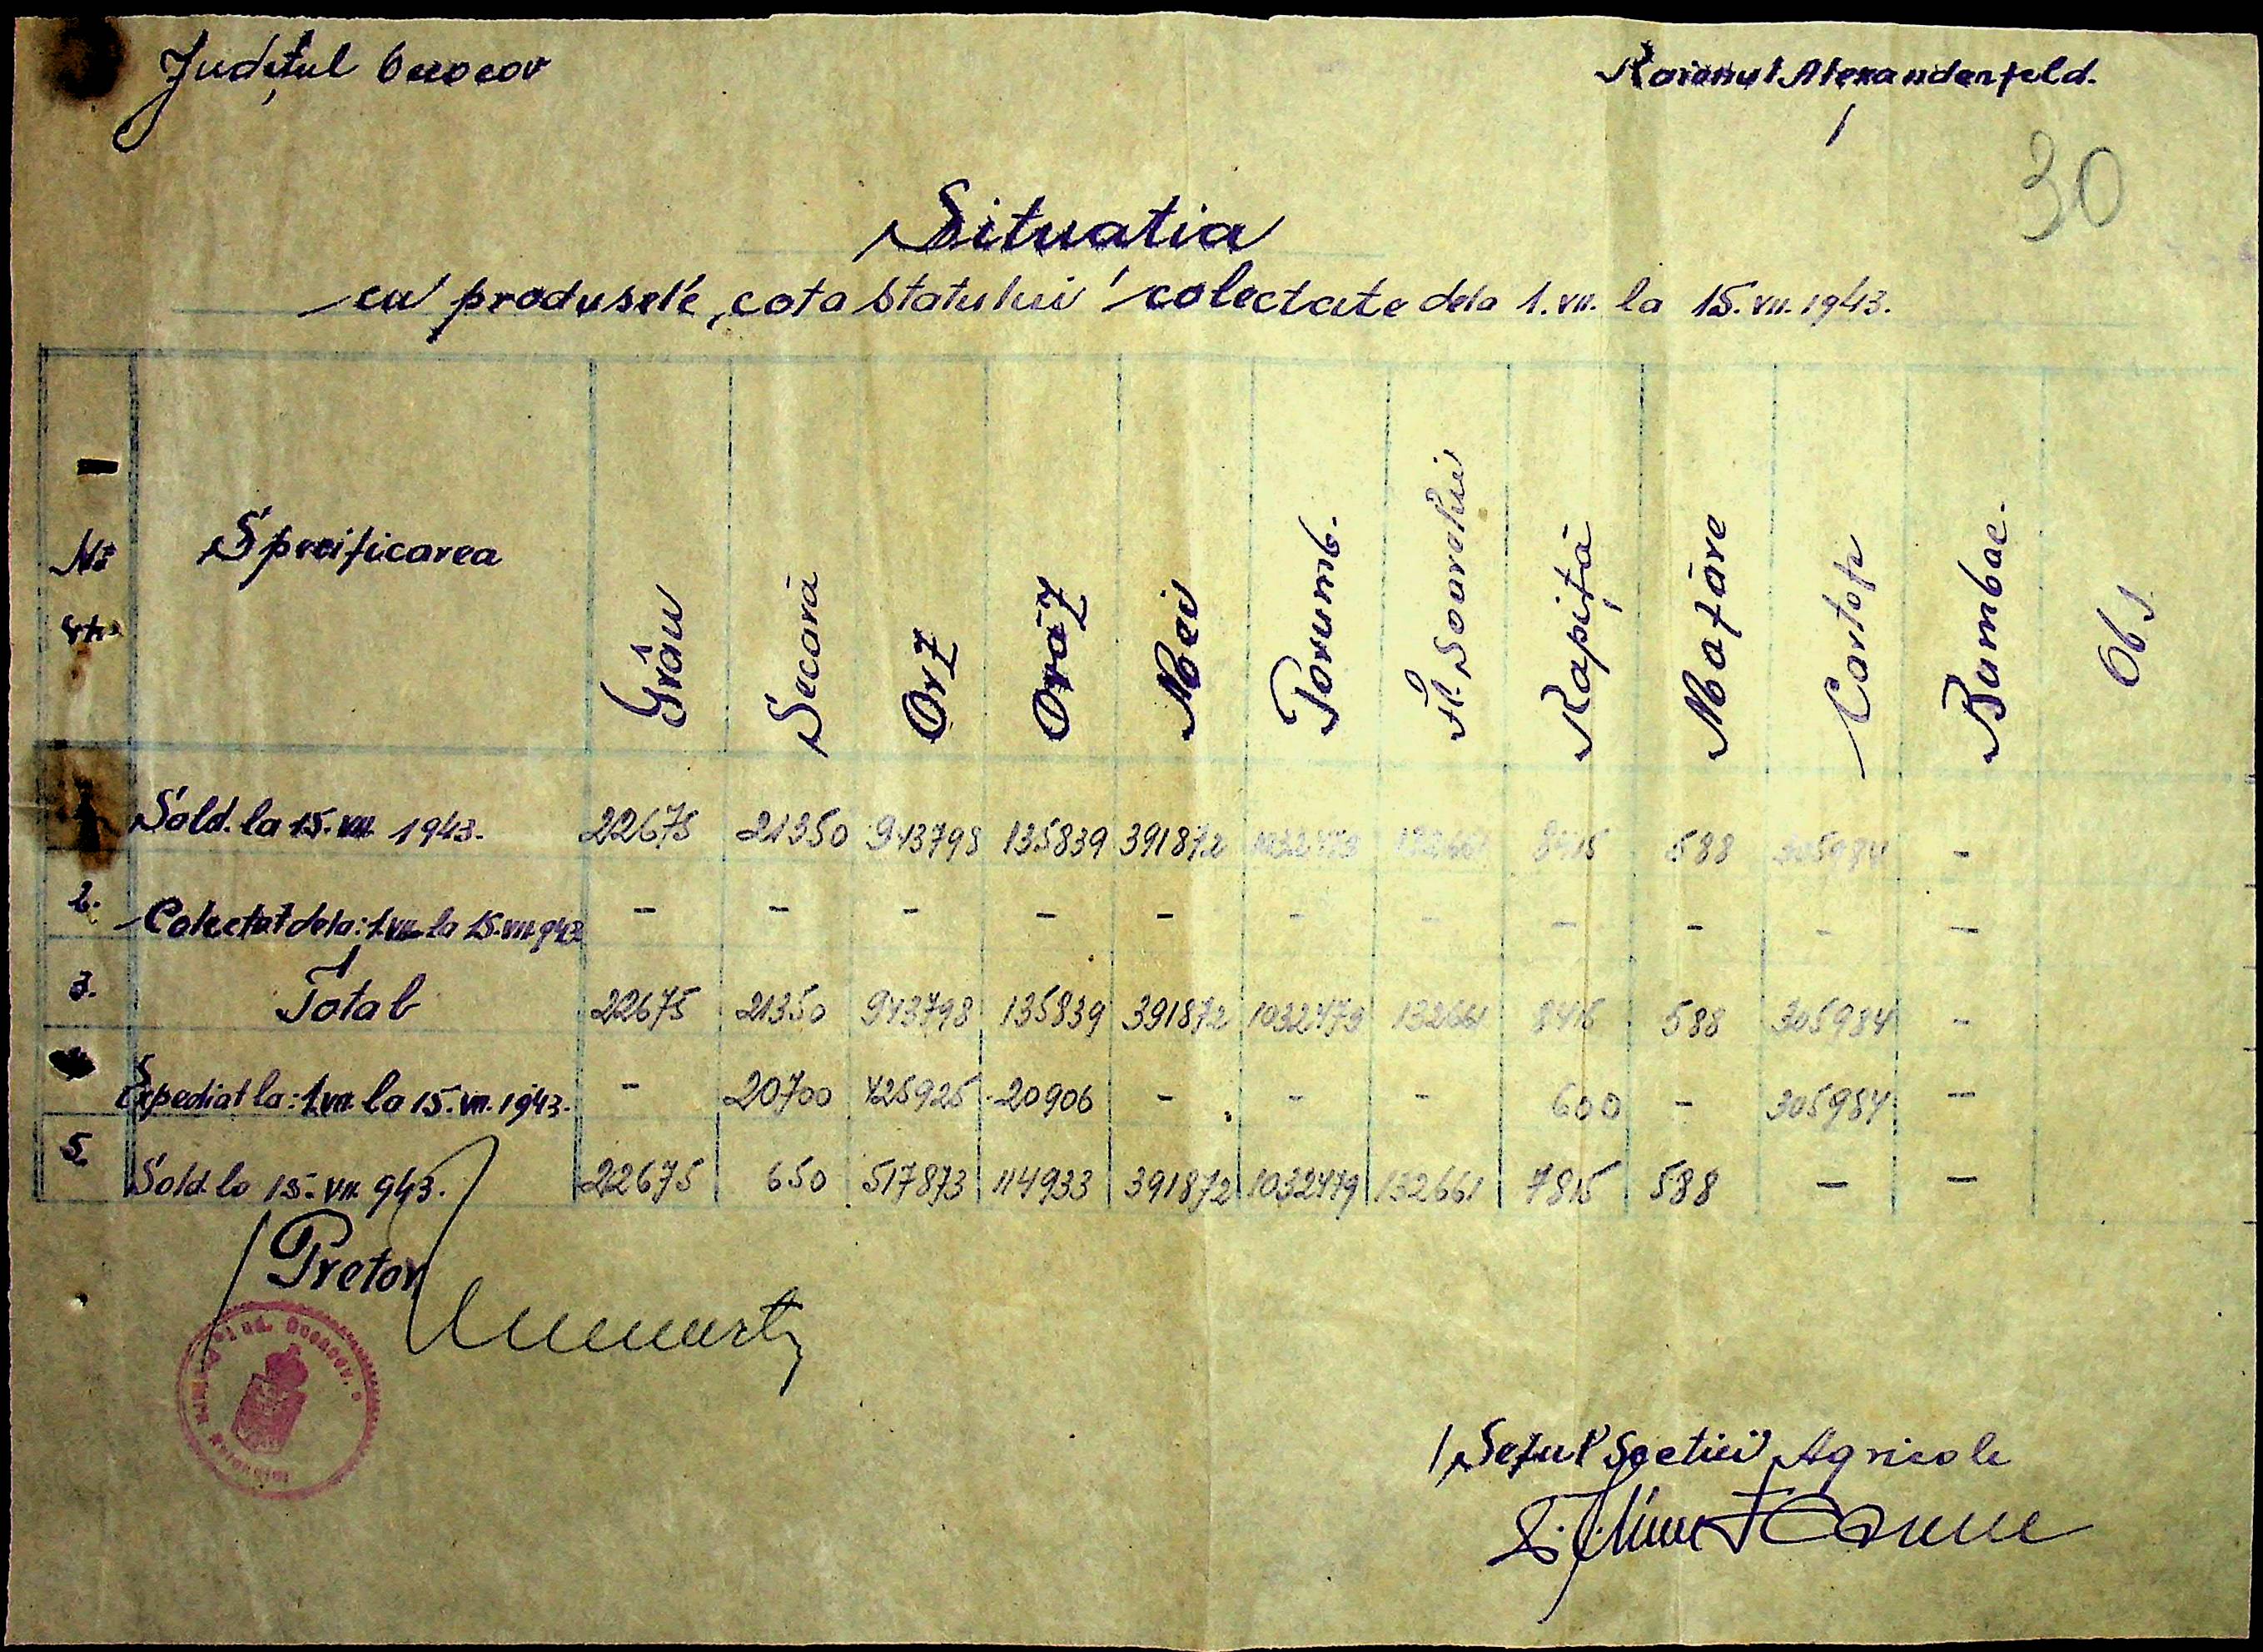 Județul Oceacov
Raionul Alexanderfeld.
30
Situatia
cu produsele "cota Statului" colectate dela 1.VII. la 15.VII.1943.
No Specificarea Grâu Secară Orz Orăz Mei Porumb. Fl. Soarelui Rapiță Mazăre Cartofi Bumbac. Obs
1 Sold. la 15.VII 1943. 22675 21350 943798 135839 391872 1032479 132661 8415 588 305984 -
2. Colectat dela: 1.VII la 15.VII.943 - - - - - - - - - - -
3. Total 22675 21350 943798 135839 391872 1032479 132661 8415 588 305984 -
Expediat la: 1.VII. la 15.VII.1943. - 20700 425925 20906 - - - 600 - 305984 -
5. Sold la 15.VII. 943. 22675 650 517873 114933 391872 1032479 132661 7815 588 - -
Pretor
Jud. Oceacov
Seful Sectiei Agricole